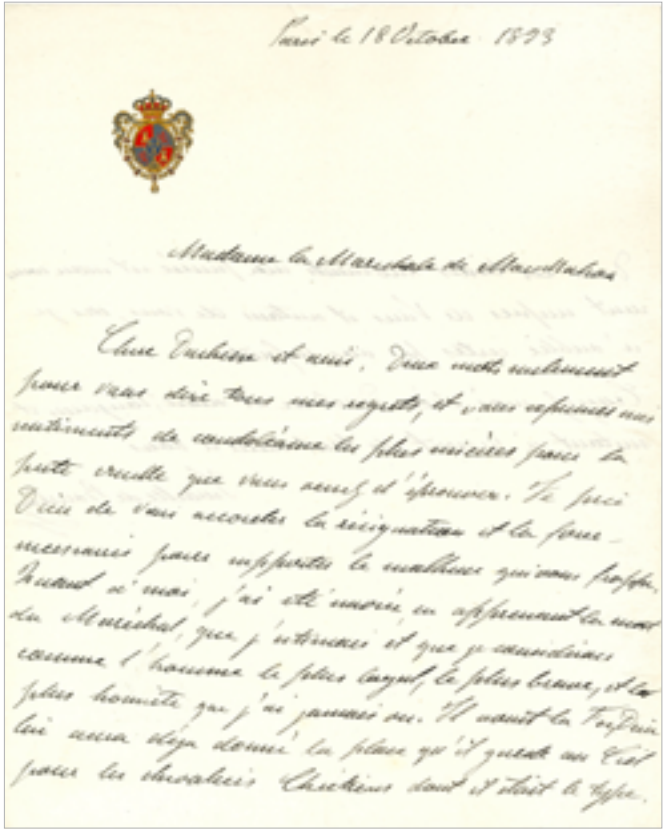 Paris le 18 Octobre 1893
Madame la Maréchale de Mac Mahon
Chère Duchesse et amie, Deux mots seulement
pour vous dire tous mes regrets, et vous exprimer mes
sentiments de condoléance les plus sincères pour la
perte cruelle que vous venez d'éprouver. Je prie
Dieu de vous accorder la résignation et la force
nécessaires pour supporter le malheur qui vous frappe.
Quant à moi, j'ai été navrée en apprenant la mort
du Maréchal, que j'estimais et que je considérais
comme l'homme le plus loyal, le plus brave, et le
plus honnête que j'ai jamais vu. Il avait la Foi, Dieu
lui aura déjà donné la place qu'il garde au Ciel
pour les chevaliers Chrétiens dont il était le type.